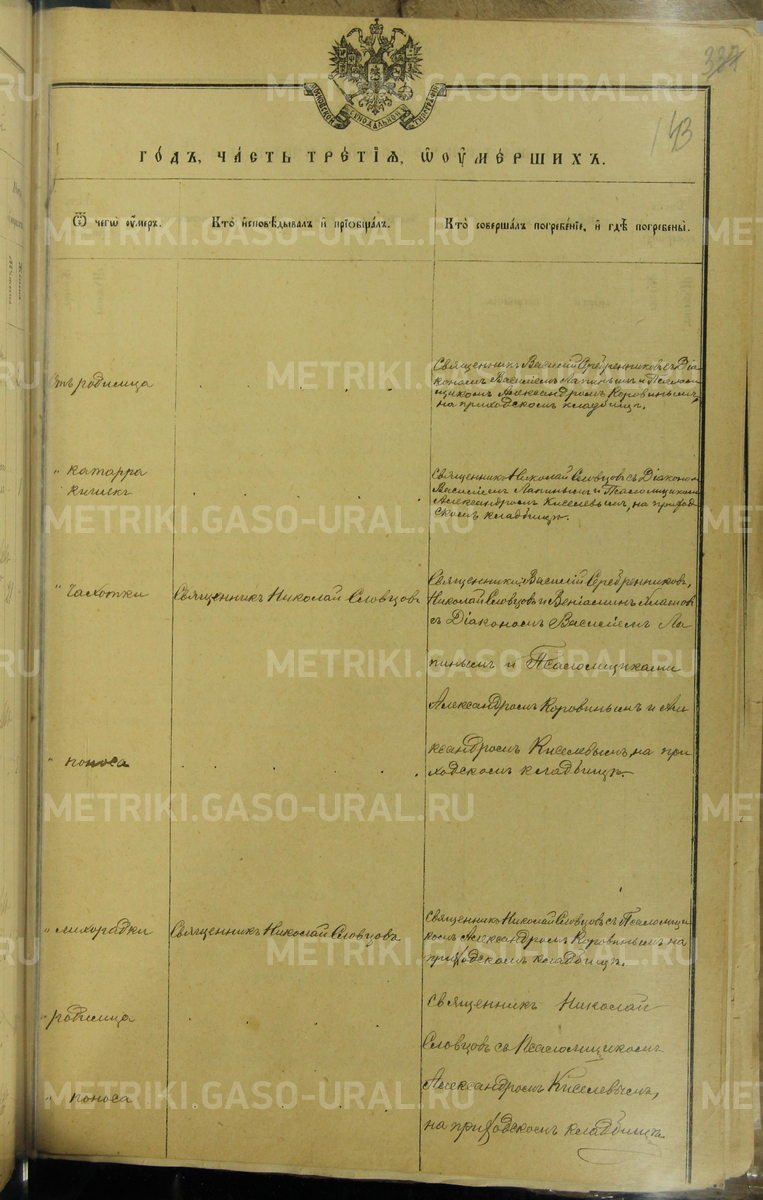 МОСКОВСКОЙ СѴНОДАЛЬНОЙ ТИПОГРАФІИ
143
ГОДЪ, ЧАСТЬ ТРЕТІЯ, Ѽ ОУМЕРШИХЪ.
Ѿ чегѡ оумеръ.
Кто исповѣдывалъ и прїобщалъ.
Кто совершалъ погребенїе, и гдѣ погребены.
Отъ родимца
Священникъ Василій Серебренниковъ съ Діа
кономъ Василіемъ Лапинымъ и Псалом
щикомъ Александромъ Коровинымъ,
на приходскомъ кладбищѣ.
" катарра
кишекъ
Священникъ Николай Словцовъ съ Діакономъ
Василіемъ Лапинымъ и Псаломщикомъ
Александромъ Киселевымъ, на приход
скомъ кладбищѣ.
" Чахотки
Священникъ Николай Словцовъ
Священники: Василій Серебренниковъ,
Николай Словцовъ и Веніаминъ
съ Діакономъ Василіемъ Ла
пинымъ и Псаломщиками
Александромъ Коровинымъ и Але
ксандромъ Киселевымъ, на при
ходскомъ кладбищѣ.
" поноса
" лихорадки
Священникъ Николай Словцовъ
Священникъ Николай Словцовъ съ Псаломщи
комъ Александромъ Коровинымъ на
приходскомъ кладбищѣ.
" родимца
Священникъ Николай
Словцовъ съ Псаломщикомъ
Александромъ Киселевымъ,
на приходскомъ кладбищѣ.
" поноса
METRIKI.GASO-URAL.RU